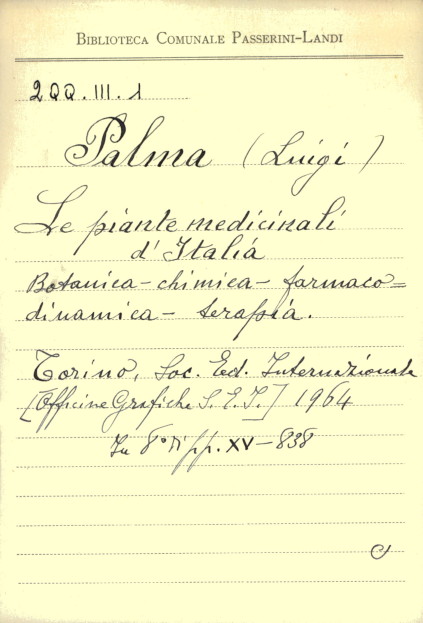 BIBLIOTECA COMUNALE PASSERINI-LANDI
2QQ.III.1
Palma (Luigi)
Le piante medicinali
d'Italia
Botanica - chimica - farmaco=
dinamica - terapia.
Torino, Soc. Ed. Internazionale
[Officine Grafiche S.E.I.] 1964
In 8° pp. XV-838